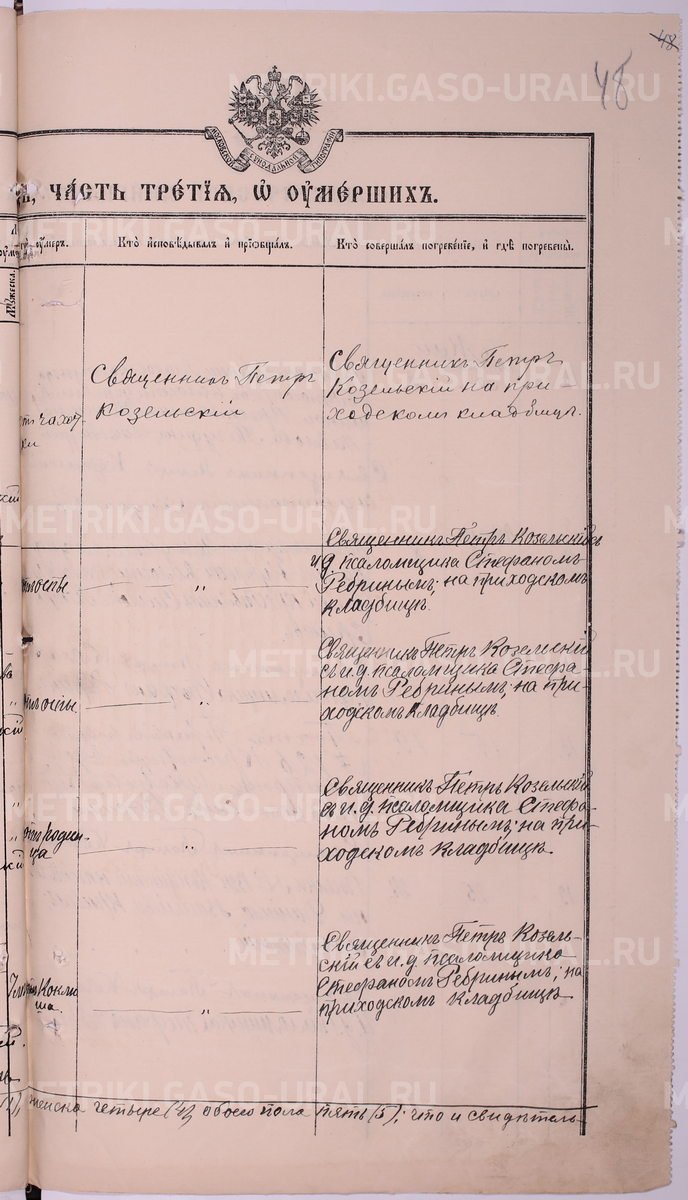 48
48
МОСКОВСКОЙ СѴНОДАЛЬНОЙ ТИПОГРАФІИ
ЧА́СТЬ ТРЕ́ТІѦ, Ѡ ОУ҆МЕ́РШИХЪ.
оу҆́меръ.
Кто̀ и҆сповѣ́дывалъ и҆ прїѡбща́лъ.
Кто̀ соверша́лъ погребе́нїе, и҆ гдѣ̀ погребены̀.
Мꙋ́жеска.
отъ чахот-
ки
Священникъ Петръ
Козельскій
Священникъ Петръ
Козельскій на при-
ходскомъ кладбищѣ.
оспы
— „ —
Священникъ Петръ Козельскій съ
и.д. псаломщика Стефаномъ
Ребринымъ; на приходскомъ
кладбищѣ.
оспы
— „ —
Священникъ Петръ Козельскій
съ и.д. псаломщика Стефа-
номъ Ребринымъ; на при-
ходскомъ кладбищѣ
отъ родим-
ца
— „ —
Священникъ Петръ Козельскій
съ и.д. псаломщика Стефа-
номъ Ребринымъ; на при-
ходскомъ кладбищѣ.
Коклю-
ша.
— „ —
Священникъ Петръ Козель-
скій съ и.д. псаломщика
Стефаномъ Ребринымъ; на
приходскомъ кладбищѣ
(1), женска четыре (4) обоего пола пять (5); что и свидѣтель-
METRIKI.GASO-URAL.RU